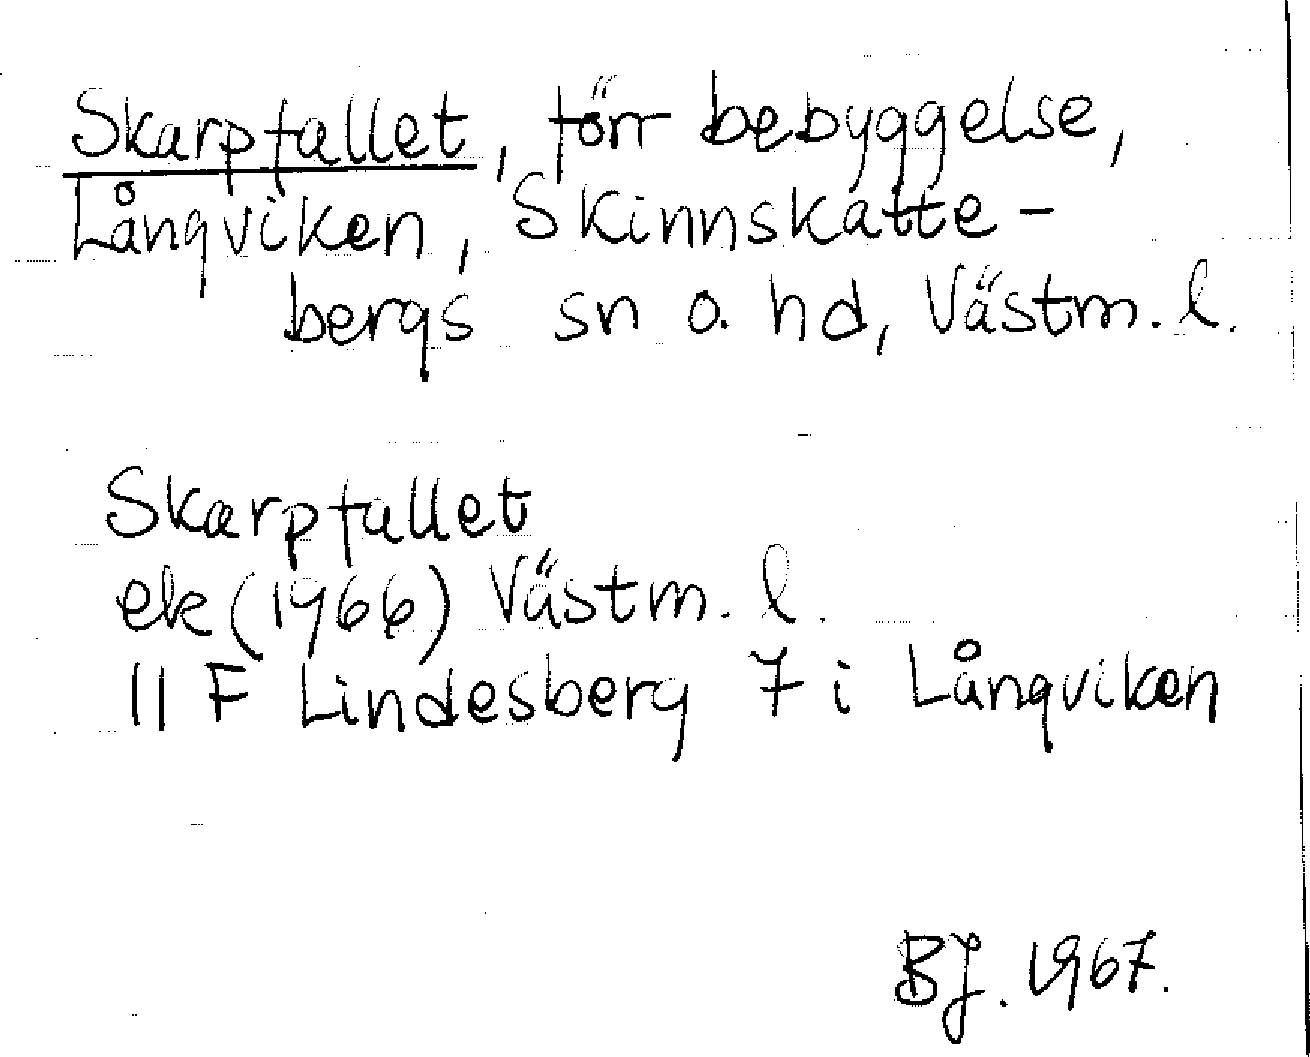 Skarpfallet, förr bebyggelse,
Långviken, Skinnskatte-
bergs sn o. hd, Västm. l.
Skarpfallet
ek (1966) Västm. l.
11 F Lindesberg 7 i Långviken
BJ. 1967.